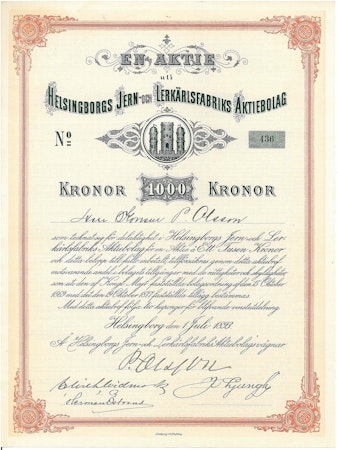 EN AKTIE
uti
HELSINGBORGS JERN- OCH LERKÄRLSFABRIKS AKTIEBOLAG
No 436
KRONOR 1000 KRONOR
Herr Konsul P. Olsson
som tecknat sig för delaktighet i Helsingborgs Jern- och Ler-
kärlsfabriks Aktiebolag för en Aktie á Ett Tusen Kronor
och detta belopp till fullo inbetalt, tillförsäkras genom detta aktiebref
motsvarande andel i bolagets tillgångar med de rättigheter och skyldigheter,
som uti den af Kongl. Maj:t fastställda bolagsordning af den 5 Oktober
och det den 19 Oktober 1877 fastställda tillägg bestämmas.
Med detta aktiebref följa kuponger för utdelning.
Helsingborg den 1 Juli 1893
Å Helsingborgs Jern- och Lerkärlsfabriks Aktiebolags vägnar.
P. Olsson
N. Ljungh
Herman